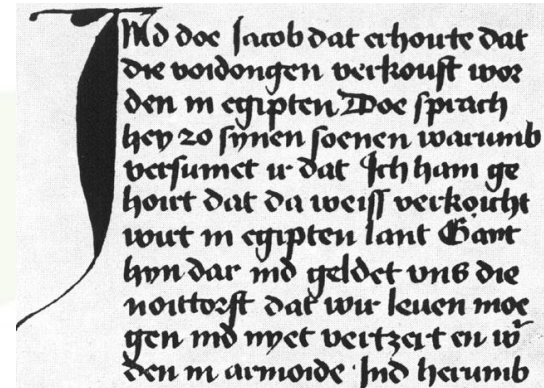 Ind doe Jacob dat erhoute dat
die voidongen verkouft wor
den in egipten Doe sprach
hey zo synen soenen warumb
versumet ir dat Ich han ge
hoirt dat da weiss verkoicht
wirt in egipten lant Gant
hyn dar ind geldet vns die
noittorft dat wir leuen moe
gen ind nyet vertzert en w
den in armoide Ind herumb